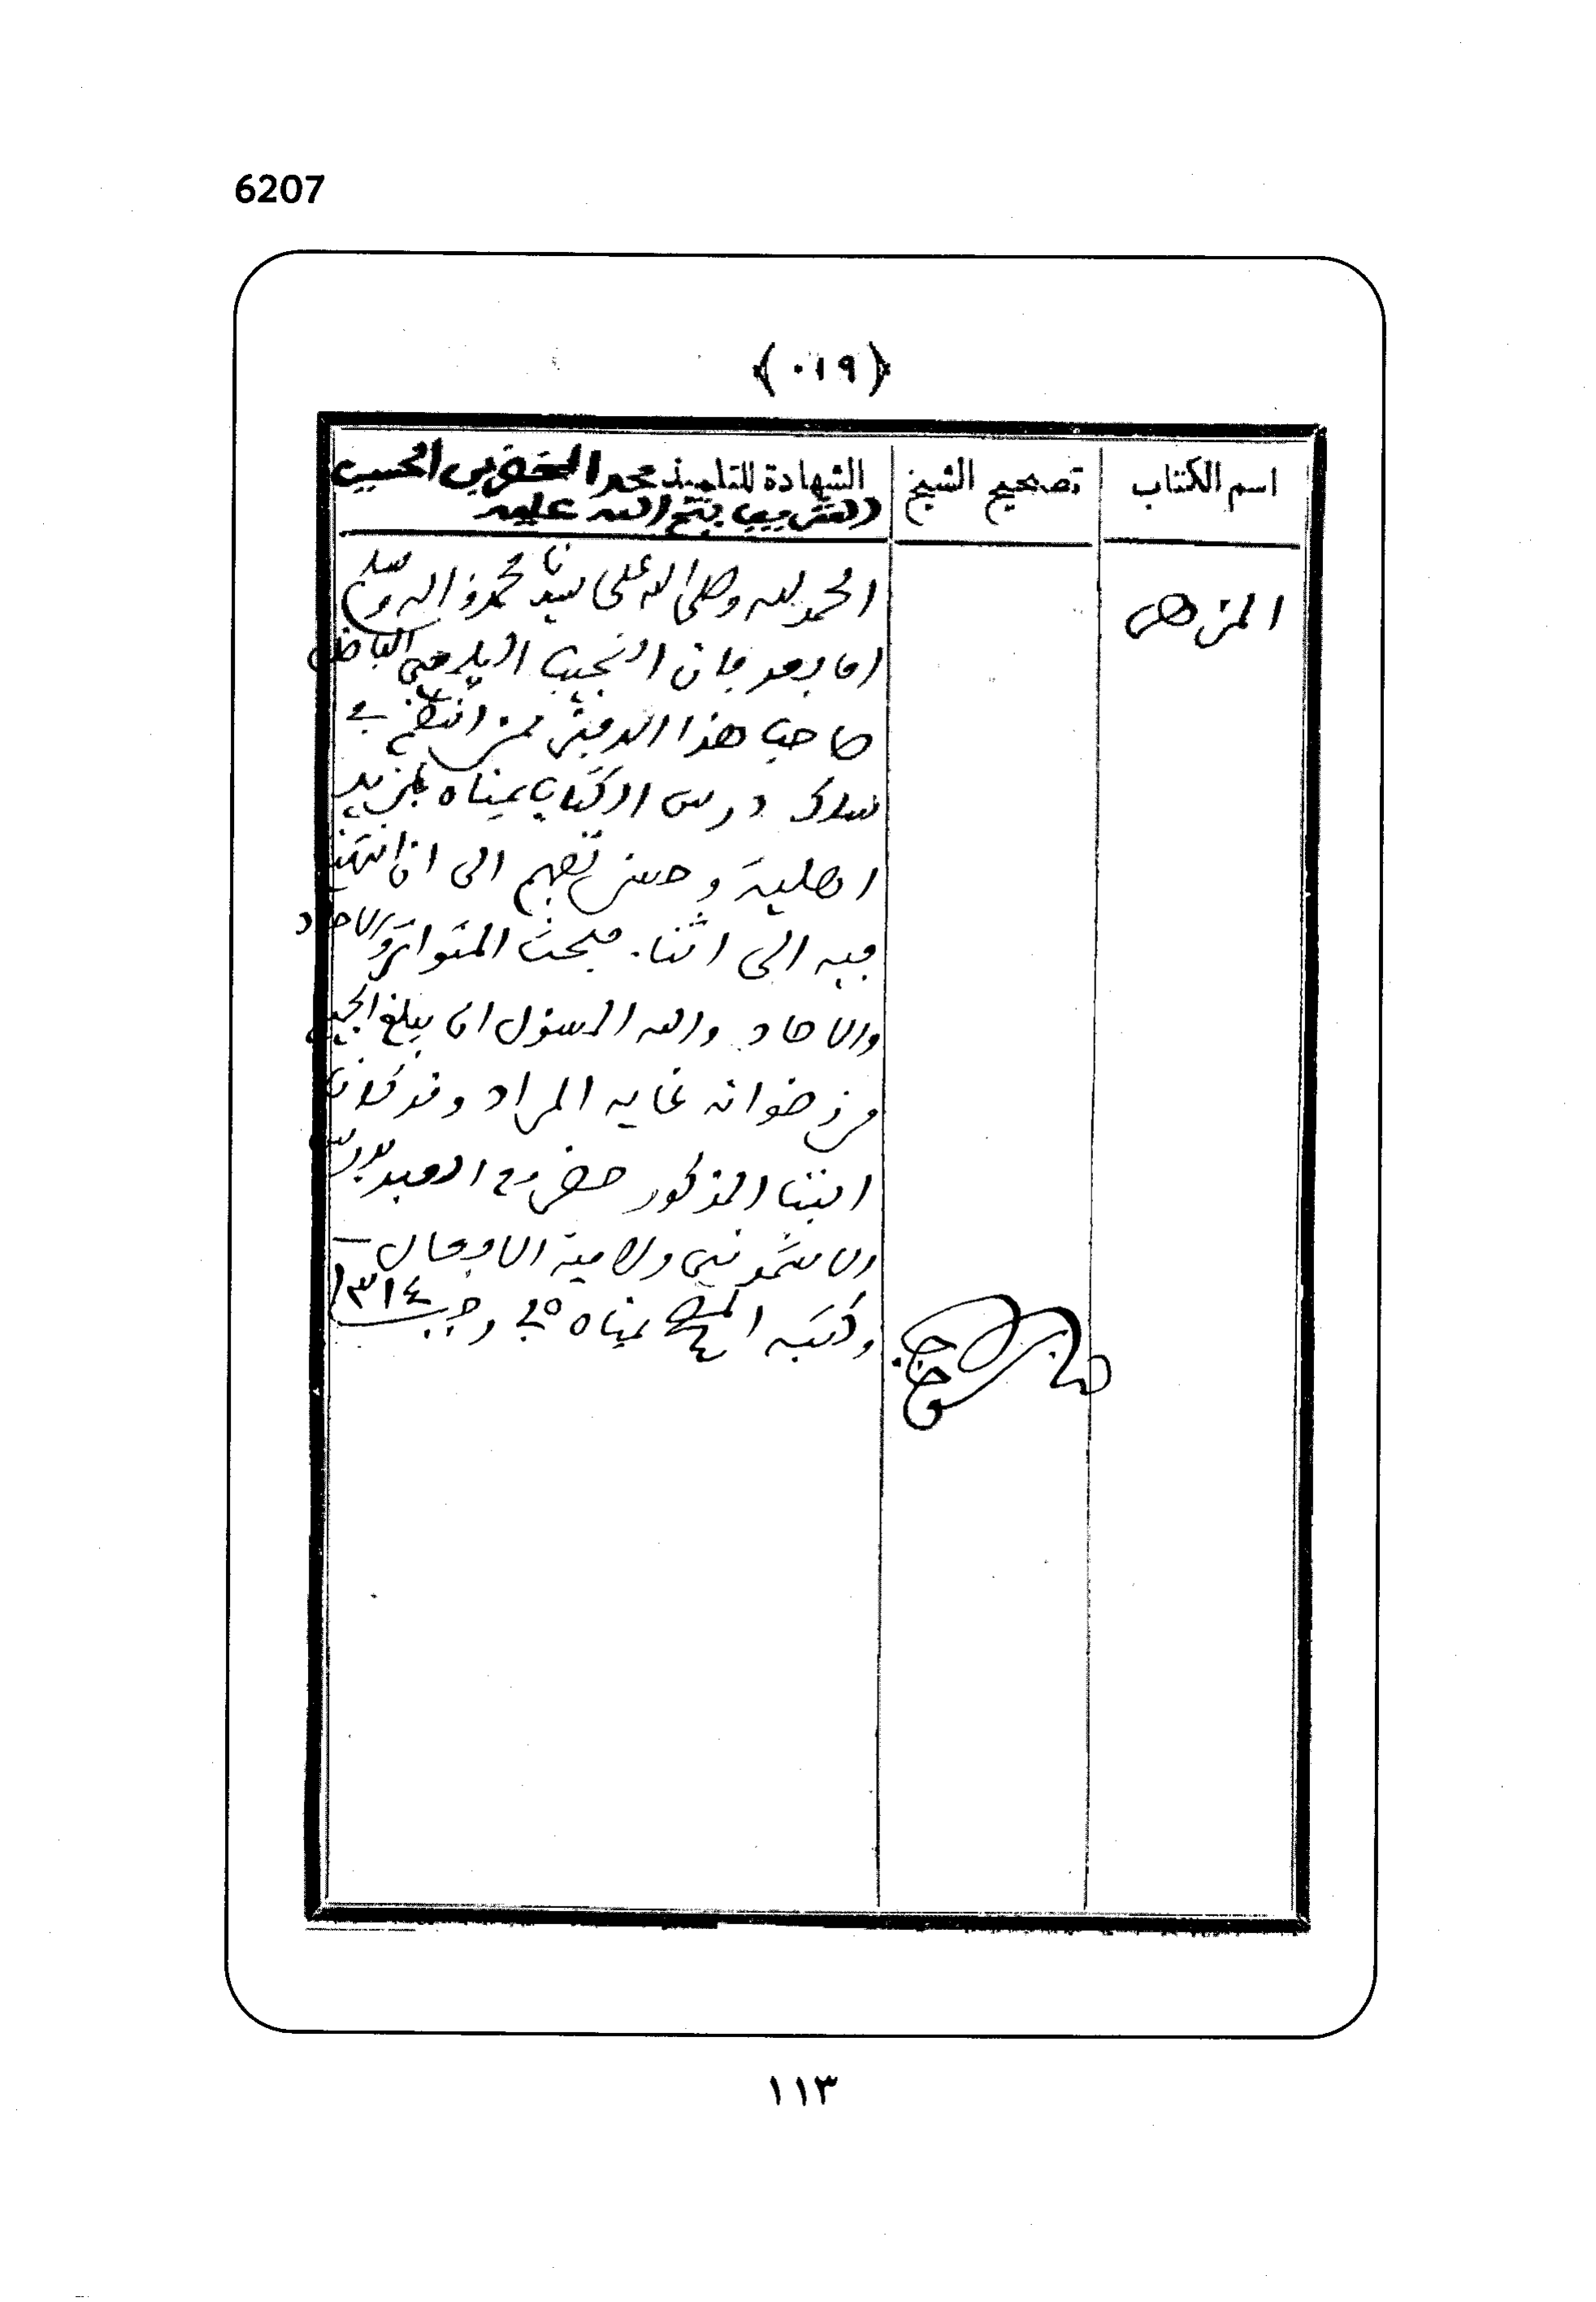 6207
(٠١٩)
اسم الكتاب
تصحيح الشيخ
الشهادة للتلميذ محمد الخضر بن الحسين
الشريف فتح الله عليه
المزهر
الحمد لله وصلى الله على سيدنا محمد واله وسلم
اما بعد فان النجيب الالمعي الفاضل
صاحب هذا الدفتر ممن انتظم في
سلك درس الكتاب يمناه بمزيد
اهلية وحسن تفهم الى ان انتهينا
فيه الى اثناء مبحث المتواتر والاحاد
والاحاد والله المسؤل ان يبلغ الجميع
من رضوانه غاية المراد وقد كان
ابننا المذكور حضر مع العبد
الاشموني ولامية الافعال
وكتبه يمناه في رجب ١٣١٤
سالم بوحاجب
١١٣